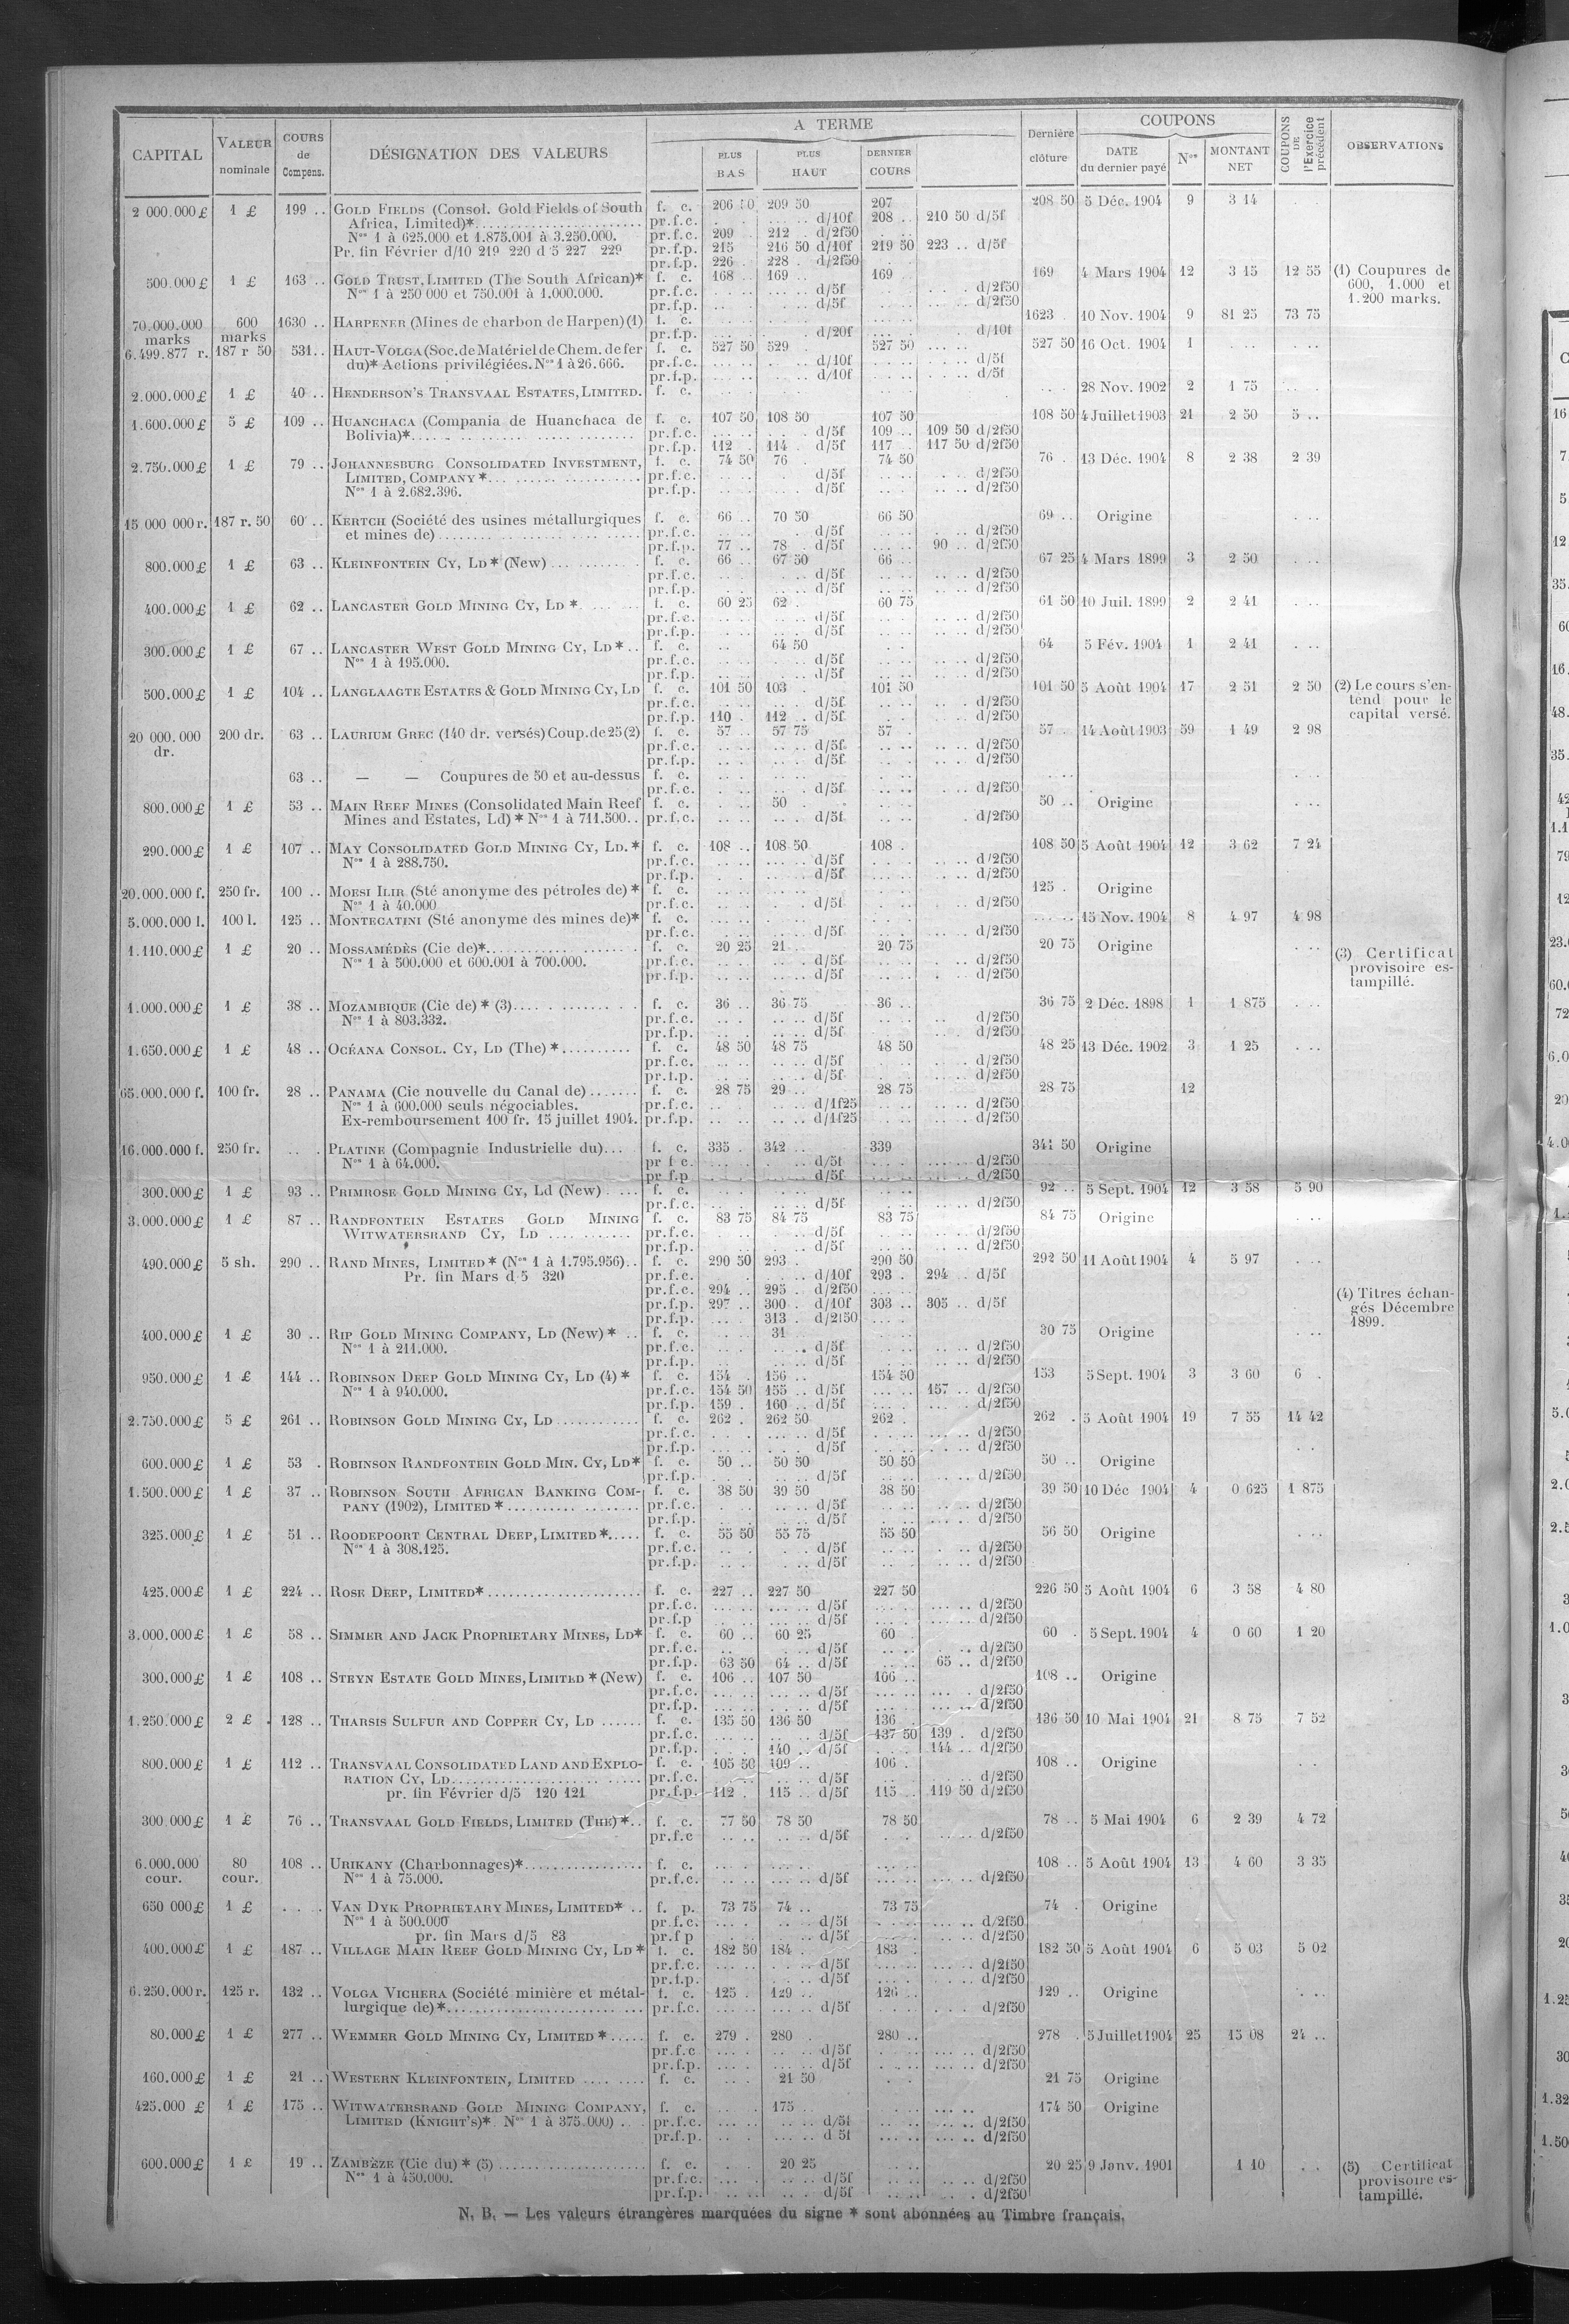 CAPITAL | VALEUR nominale | COURS de Compens. | DÉSIGNATION DES VALEURS | A TERME | PLUS BAS | PLUS HAUT | DERNIER COURS | Dernière clôture | COUPONS | DATE du dernier payé | Nos | MONTANT NET | COUPONS DE l'Exercice précédent | OBSERVATIONS
2 000.000£ 1 £ 199 .. GOLD FIELDS (Consol. Gold Fields of South f. c. 209 50 207 208 50 5 Déc. 1904 9 3 14
Africa, Limited)* pr.f.c. d/10f 208 .. 210 50 d/5f
Nos 1 à 625.000 et 1.875.001 à 3.250.000. pr.f.c. 209 212 d/2f50
Pr. fin Février d/10 219 220 d 5 227 229 pr.f.p. 215 216 50 d/10f 219 50 223 .. d/5f
pr.f.p. 226 228 d/2f50
500.000£ 1 £ 163 .. GOLD TRUST, LIMITED (The South African)* f. c. 168 .. 169 .. 169 169 4 Mars 1904 12 3 15 12 55 (1) Coupures de
Nos 1 à 250 000 et 750.001 à 1.000.000. pr.f.c. d/5f d/2f50 600, 1.000 et
pr.f.p. d/5f d/2f50 1.200 marks.
70.000.000 marks 600 marks 1630 .. HARPENER (Mines de charbon de Harpen) (1) f. c. 1623 10 Nov. 1904 9 81 25 73 75
pr.f.p. d/20f d/10f
6.499.877 r. 187 r 50 531.. HAUT-VOLGA (Soc. de Matériel de Chem. de fer f. c. 527 50 529 527 50 527 50 16 Oct. 1904 1
du)* Actions privilégiées. Nos 1 à 26.666. pr.f.c. d/10f d/5f
pr.f.p. d/10f d/5f
2.000.000£ 1 £ 40 .. HENDERSON'S TRANSVAAL ESTATES, LIMITED. f. c. 28 Nov. 1902 2 1 75
1.600.000£ 5 £ 109 .. HUANCHACA (Compania de Huanchaca de f. c. 107 50 108 50 107 50 108 50 4 Juillet 1903 21 2 50 5 ..
Bolivia)* pr.f.c. d/5f 109 .. 109 50 d/2f50
pr.f.p. 112 114 d/5f 117 117 50 d/2f50
2.750.000£ 1 £ 79 .. JOHANNESBURG CONSOLIDATED INVESTMENT, f. c. 74 50 76 74 50 76 13 Déc. 1904 8 2 38 2 39
LIMITED, COMPANY * pr.f.c. d/5f d/2f50
Nos 1 à 2.682.396. pr.f.p. d/5f d/2f50
15 000 000 r. 187 r. 50 60 .. KERTCH (Société des usines métallurgiques f. c. 66 .. 70 50 66 50 69 .. Origine
et mines de) pr.f.c. d/5f d/2f50
pr.f.p. 77 .. 78 d/5f 90 .. d/2f50
800.000£ 1 £ 63 .. KLEINFONTEIN CY, LD * (New) f. c. 66 .. 67 50 66 .. 67 25 4 Mars 1899 3 2 50
pr.f.c. d/5f d/2f50
pr.f.p. d/5f d/2f50
400.000£ 1 £ 62 .. LANCASTER GOLD MINING CY, LD * f. c. 60 25 62 60 75 61 50 10 Juil. 1899 2 2 41
pr.f.c. d/5f d/2f50
pr.f.p. d/5f d/2f50
300.000£ 1 £ 67 .. LANCASTER WEST GOLD MINING CY, LD * f. c. 64 50 64 5 Fév. 1904 1 2 41
Nos 1 à 195.000. pr.f.c. d/5f d/2f50
pr.f.p. d/5f d/2f50
500.000£ 1 £ 104 .. LANGLAAGTE ESTATES & GOLD MINING CY, LD f. c. 101 50 103 101 50 101 50 5 Août 1904 17 2 51 2 50 (2) Le cours s'en-
pr.f.c. d/5f d/2f50 tend pour le
pr.f.p. 110 112 .. d/5f d/2f50 capital versé.
20 000.000 dr. 200 dr. 63 .. LAURIUM GREC (140 dr. versés) Coup. de 25 (2) f. c. 57 .. 57 75 57 57 14 Août 1903 59 1 49 2 98
pr.f.c. d/5f d/2f50
pr.f.p. d/5f d/2f50
63 .. — — Coupures de 50 et au-dessus f. c.
pr.f.c. d/5f d/2f50
800.000£ 1 £ 53 .. MAIN REEF MINES (Consolidated Main Reef f. c. 50 50 .. Origine
Mines and Estates, Ld) * Nos 1 à 711.500.. pr.f.c. d/5f d/2f50
290.000£ 1 £ 107 .. MAY CONSOLIDATED GOLD MINING CY, LD. * f. c. 108 .. 108 50 108 108 50 5 Août 1904 12 3 62 7 24
Nos 1 à 288.750. pr.f.c. d/5f d/2f50
pr.f.p. d/5f d/2f50
20.000.000 f. 250 fr. 100 .. MOESI ILIR (Sté anonyme des pétroles de) * f. c. 125 Origine
Nos 1 à 40.000 pr.f.c. d/5f d/2f50
5.000.000 l. 100 l. 125 .. MONTECATINI (Sté anonyme des mines de)* f. c. 15 Nov. 1904 8 4 97 4 98
pr.f.c. d/5f d/2f50
1.110.000£ 1 £ 20 .. MOSSAMÉDÈS (Cie de)* f. c. 20 25 21 20 75 20 75 Origine (3) Certificat
Nos 1 à 500.000 et 600.001 à 700.000. pr.f.c. d/5f d/2f50 provisoire es-
pr.f.p. d/5f d/2f50 tampillé.
1.000.000£ 1 £ 38 .. MOZAMBIQUE (Cie de) * (3) f. c. 36 .. 36 75 36 .. 36 75 2 Déc. 1898 1 1 875
Nos 1 à 803.332. pr.f.c. d/5f d/2f50
pr.f.p. d/5f d/2f50
1.650.000£ 1 £ 48 .. OCÉANA CONSOL. CY, LD (The) * f. c. 48 50 48 75 48 50 48 25 13 Déc. 1902 3 1 25
pr.f.c. d/5f d/2f50
pr.f.p. d/5f d/2f50
65.000.000 f. 100 fr. 28 .. PANAMA (Cie nouvelle du Canal de) f. c. 28 75 29 .. 28 75 28 75 12
Nos 1 à 600.000 seuls négociables. pr.f.c. d/1f25 d/2f50
Ex-remboursement 100 fr. 15 juillet 1904. pr.f.p. d/1f25 d/2f50
16.000.000 f. 250 fr. PLATINE (Compagnie Industrielle du) f. c. 335 342 .. 339 341 50 Origine
Nos 1 à 64.000. pr f c. d/5f d/2f50
pr f.p d/5f d/2f50
300.000£ 1 £ 93 .. PRIMROSE GOLD MINING CY, Ld (New) f. c. 92 .. 5 Sept. 1904 12 3 58 5 90
pr.f.c. d/5f d/2f50
3.000.000£ 1 £ 87 .. RANDFONTEIN ESTATES GOLD MINING f. c. 83 75 84 75 83 75 84 75 Origine
WITWATERSRAND CY, LD pr.f.c. d/5f d/2f50
pr.f.p. d/5f d/2f50
490.000£ 5 sh. 290 .. RAND MINES, LIMITED * (Nos 1 à 1.795.956) f. c. 290 50 293 290 50 292 50 11 Août 1904 4 5 97
Pr. fin Mars d 5 320 pr.f.c. d/10f 293 294 d/5f
pr.f.c. 294 .. 295 d/2f50
pr.f.p. 297 .. 300 d/10f 303 .. 305 .. d/5f (4) Titres échan-
pr.f.p. 313 d/2f50 gés Décembre 1899.
400.000£ 1 £ 30 .. RIP GOLD MINING COMPANY, LD (New) * f. c. 31 30 75 Origine
Nos 1 à 211.000. pr.f.c. d/5f d/2f50
pr.f.p. d/5f d/2f50
950.000£ 1 £ 144 .. ROBINSON DEEP GOLD MINING CY, LD (4) * f. c. 154 156 .. 154 50 153 5 Sept. 1904 3 3 60 6
Nos 1 à 940.000. pr.f.c. 154 50 155 .. d/5f 157 .. d/2f50
pr.f.p. 159 160 .. d/5f d/2f50
2.750.000£ 5 £ 261 .. ROBINSON GOLD MINING CY, LD f. c. 262 262 50 262 262 5 Août 1904 19 7 55 14 42
pr.f.c. d/5f d/2f50
pr.f.p. d/5f d/2f50
600.000£ 1 £ 53 ROBINSON RANDFONTEIN GOLD MIN. CY, LD* f. c. 50 .. 50 50 50 50 50 .. Origine
pr.f.p. d/5f d/2f50
1.500.000£ 1 £ 37 .. ROBINSON SOUTH AFRICAN BANKING COM- f. c. 38 50 39 50 38 50 39 50 10 Déc 1904 4 0 625 1 875
PANY (1902), LIMITED * pr.f.c. d/5f d/2f50
pr.f.p. d/5f d/2f50
325.000£ 1 £ 51 .. ROODEPOORT CENTRAL DEEP, LIMITED * f. c. 55 50 55 75 55 50 56 50 Origine
Nos 1 à 308.125. pr.f.c. d/5f d/2f50
pr.f.p. d/5f d/2f50
425.000£ 1 £ 224 .. ROSE DEEP, LIMITED* f. c. 227 .. 227 50 227 50 226 50 5 Août 1904 6 3 58 4 80
pr.f.c. d/5f d/2f50
pr.f.p d/5f d/2f50
3.000.000£ 1 £ 58 .. SIMMER AND JACK PROPRIETARY MINES, LD* f. c. 60 .. 60 25 60 60 5 Sept. 1904 4 0 60 1 20
pr.f.c. d/5f d/2f50
pr.f.p. 63 50 64 .. d/5f 65 .. d/2f50
300.000£ 1 £ 108 .. STEYN ESTATE GOLD MINES, LIMITED * (New) f. c. 106 .. 107 50 106 .. 108 .. Origine
pr.f.c. d/5f d/2f50
pr.f.p. d/5f d/2f50
1.250.000£ 2 £ 128 .. THARSIS SULFUR AND COPPER CY, LD f. c. 135 50 136 50 136 136 50 10 Mai 1904 21 8 75 7 52
pr.f.c. d/5f 137 50 139 d/2f50
pr.f.p. 140 .. d/5f 144 .. d/2f50
800.000£ 1 £ 112 .. TRANSVAAL CONSOLIDATED LAND AND EXPLO- f. c. 105 50 109 .. 106 108 .. Origine
RATION CY, LD pr.f.c. d/5f d/2f50
pr. fin Février d/5 120 121 pr.f.p. 112 115 .. d/5f 115 119 50 d/2f50
300.000£ 1 £ 76 .. TRANSVAAL GOLD FIELDS, LIMITED (THE) * f. c. 77 50 78 50 78 50 78 .. 5 Mai 1904 6 2 39 4 72
pr.f.c d/5f d/2f50
6.000.000 cour. 80 cour. 108 .. URIKANY (Charbonnages)* f. c. 108 .. 5 Août 1904 13 4 60 3 35
Nos 1 à 75.000. pr.f.c. d/5f d/2f50
650 000£ 1 £ VAN DYK PROPRIETARY MINES, LIMITED* f. p. 73 75 74 .. 73 75 74 Origine
Nos 1 à 500.000 pr.f.c. d/5f d/2f50
pr. fin Mars d/5 83 pr.f p d/5f d/2f50
400.000£ 1 £ 187 .. VILLAGE MAIN REEF GOLD MINING CY, LD * f. c. 182 50 184 183 182 50 5 Août 1904 6 5 03 5 02
pr.f.c. d/5f d/2f50
pr.f.p. d/5f d/2f50
6.250.000 r. 125 r. 132 .. VOLGA VICHERA (Société minière et métal- f. c. 125 129 .. 126 129 .. Origine
lurgique de)* pr.f.c. d/5f d/2f50
80.000£ 1 £ 277 .. WEMMER GOLD MINING CY, LIMITED * f. c. 279 280 280 .. 278 5 Juillet 1904 25 15 08 24 ..
pr.f.c d/5f d/2f50
pr.f.p. d/5f d/2f50
160.000£ 1 £ 21 .. WESTERN KLEINFONTEIN, LIMITED f. c. 21 50 21 75 Origine
425.000 £ 1 £ 175 .. WITWATERSRAND GOLD MINING COMPANY, f. c. 175 174 50 Origine
LIMITED (KNIGHT'S)* Nos 1 à 375.000) pr.f.c. d/5f d/2f50
pr.f.p. d 5f d/2f50
600.000£ 1 £ 19 .. ZAMBÈZE (Cie du) * (5) f. c. 20 25 20 25 9 Janv. 1901 1 10 (5) Certificat
Nos 1 à 450.000. pr.f.c. d/5f d/2f50 provisoire es-
pr.f.p. d/5f d/2f50 tampillé.
N. B. — Les valeurs étrangères marquées du signe * sont abonnées au Timbre français.